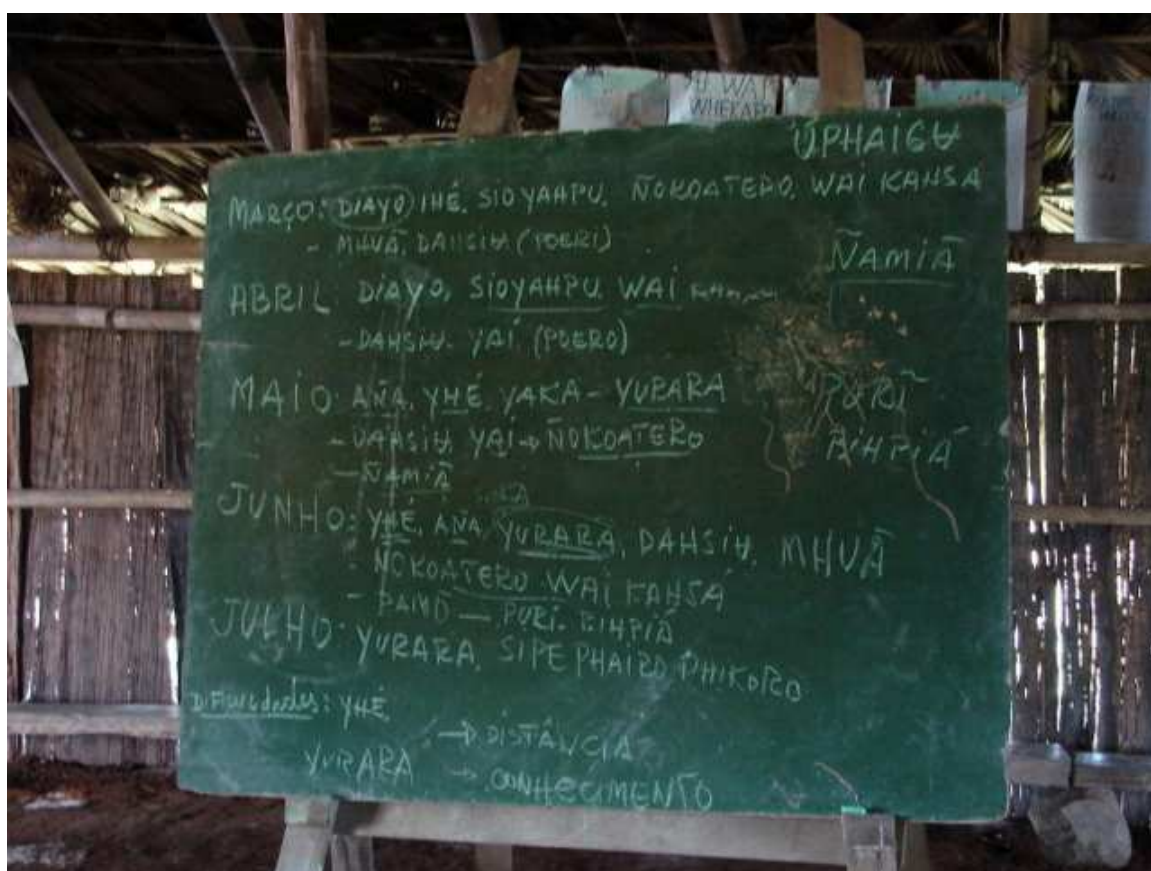 U WAI
WHEKAPO
ŨPHAIGɄ
MARÇO: DIAYO IHÉ, SIOYAHPU, ÑOKOATERO, WAI KAHSA
- MHUÃ, DAHSIɄ (POERI)
ÑAMIÃ
ABRIL DIAYO, SIOYAHPU, WAI
- DAHSIɄ YAÍ (POERO)
MAIO AÑA, YHÉ YAKA - YURARA
PURĨ
- DAHSIɄ YAÍ → ÑOKOATERO
BIHPIÃ
- ÑAMIÃ
JUNHO: YHÉ, AÑA, YURARA, DAHSIɄ, MHUÃ
- ÑOKOATERO WAI KAHSA
- PAMÕ — PURI. BIHPIÃ
JULHO: YURARA, SIPE PHAIRO PHIKORO
Dificuldades: YHÉ
→ DISTÂNCIA
YURARA → CONHECIMENTO